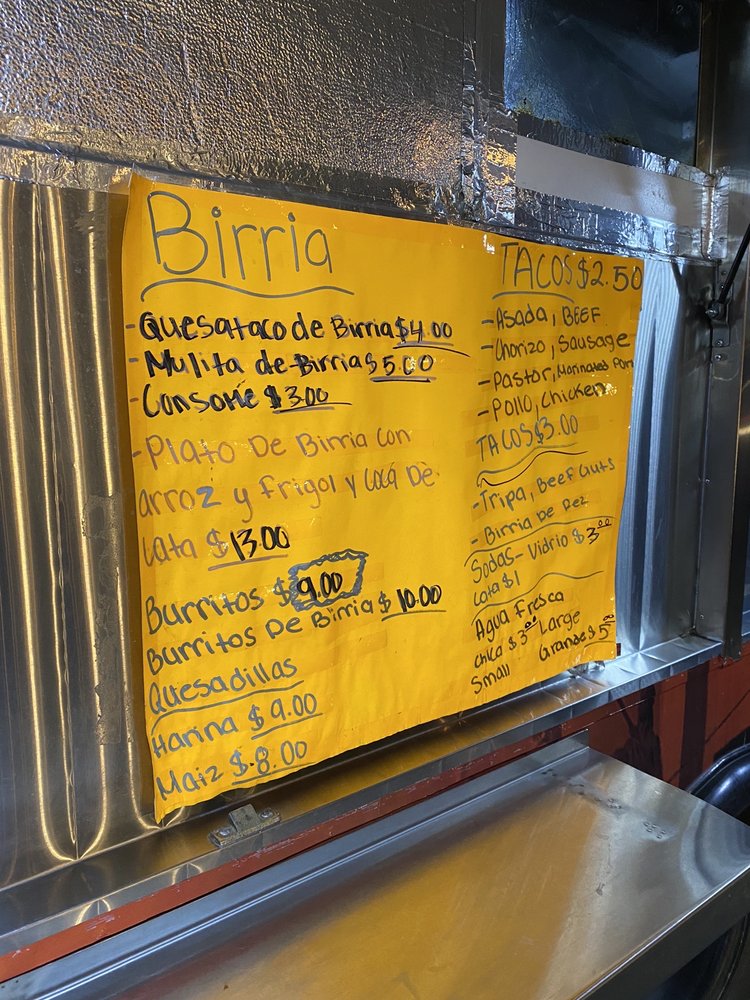 Birria
- Quesataco de Birria $4.00
- Mulita de Birria $5.00
- Consome $3.00
- Plato De Birria con
arroz y frigol y Coca De
lata $13.00
Burritos $9.00
Burritos De Birria $10.00
Quesadillas
Harina $9.00
Maiz $8.00
TACOS $2.50
- Asada, BEEF
- Chorizo, Sausage
- Pastor, Marinated Pork
- Pollo, Chicken
TACOS $3.00
- Tripa, Beef Guts
- Birria De Rez
Sodas - Vidrio $3.00
Lata $1
Agua Fresca
Chica $3.00 Large
Small Grande $5.00